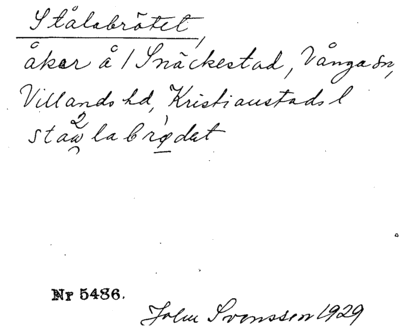 Stålabrötet,
åker å 1 Snäckestad, Vånga sn,
Villands hd, Kristianstads l
stawlabrødet
Nr 5486.
John Svensson 1929